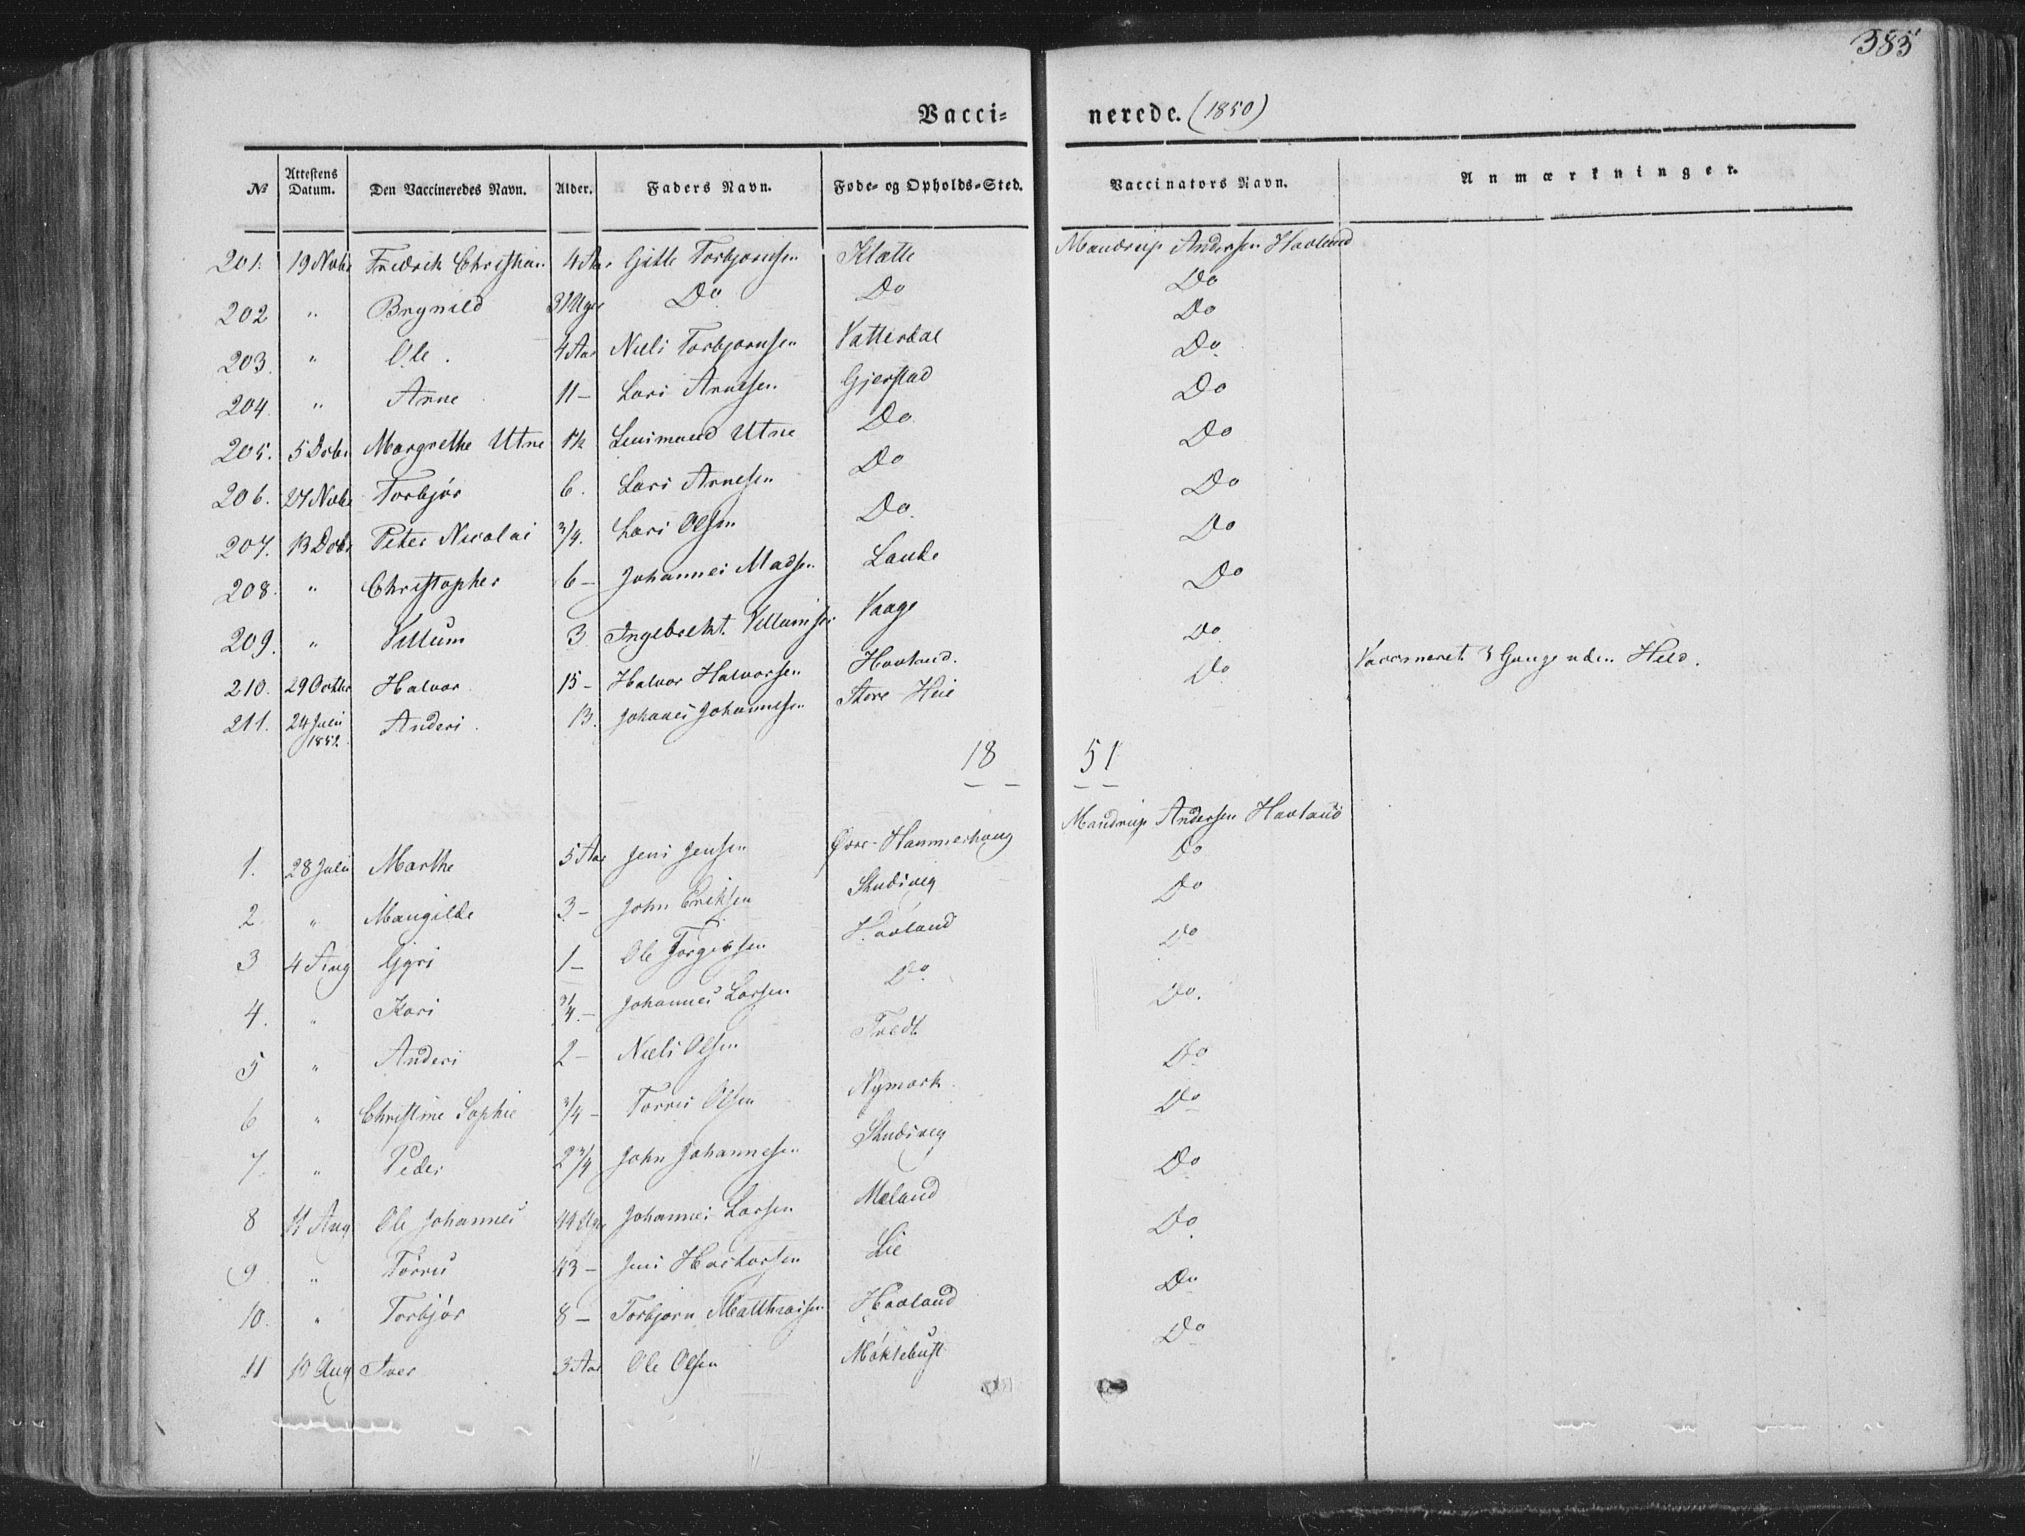 385
Vacci= nerede. (1850)
№ Attestens Datum. Den Vaccineredes Navn. Alder. Faders Navn. Føde- og Opholds-Sted. Vaccinators Navn. Anmærkninger.
201. 19 Nobr Fredrik Christian 4 Aar Gitle Torbjornsen Klætte Mandrup Andersen Havland
202 " Brynild 31 Uger Do Do Do
203. " Ole. 4 Aar Niels Torbjornsen Vatterdal Do
204. " Arne 11 – Lars Arnesen Gjerstad Do
205. 5 Dcbr Margrethe Utne Utne Do Do
206. 27 Nobr Torbjør 6. Lars Arnesen Do Do
207. 13 Dcbr Peter Nicolai 3/4. Lars Olsen Do. Do
208. " Christopher 6 – Johannes Madsen Lande Do
209. " Villum 3 Ingebrekt Villumsen Vaage Do
210. 29 Octbr Halvor 15 – Halvor Halvorsen Havland. Do Vaccineret 3 Gange uden Held.
211. 24 Juli 1851. Anders. 13. Johanes Johannesen Store Hie Do
18 51
1. 28 Juli Marthe 5 Aar Jens Jensen Øvre-Hammerhoug Mandrup Andersen Havland
2 " Mangilde 3 – John Eriksen Skudsveg Do
3 4 Aug Gyri 1 – Ole Torgersen Havland Do
4. " Kari 3/4. – Johannes Larsen Do Do
5 " Anders 2 – Niels Olsen Tvedt Do.
6 " Christine Sophie 3/4 – Torris Olsen Nymark Do
7. " Peder 2 3/4 John Johannesen Skudsveg Do
8 11 Aug Ole Johannes Uger Johannes Larsen Mæland Do
9 " Torris 13 – Jens Lie Do
10. " Torbjør 8 – Torbjorn Matthiassen Havland Do
11 Aug Iver 3 Aar Ole Olsen Møklebust Do